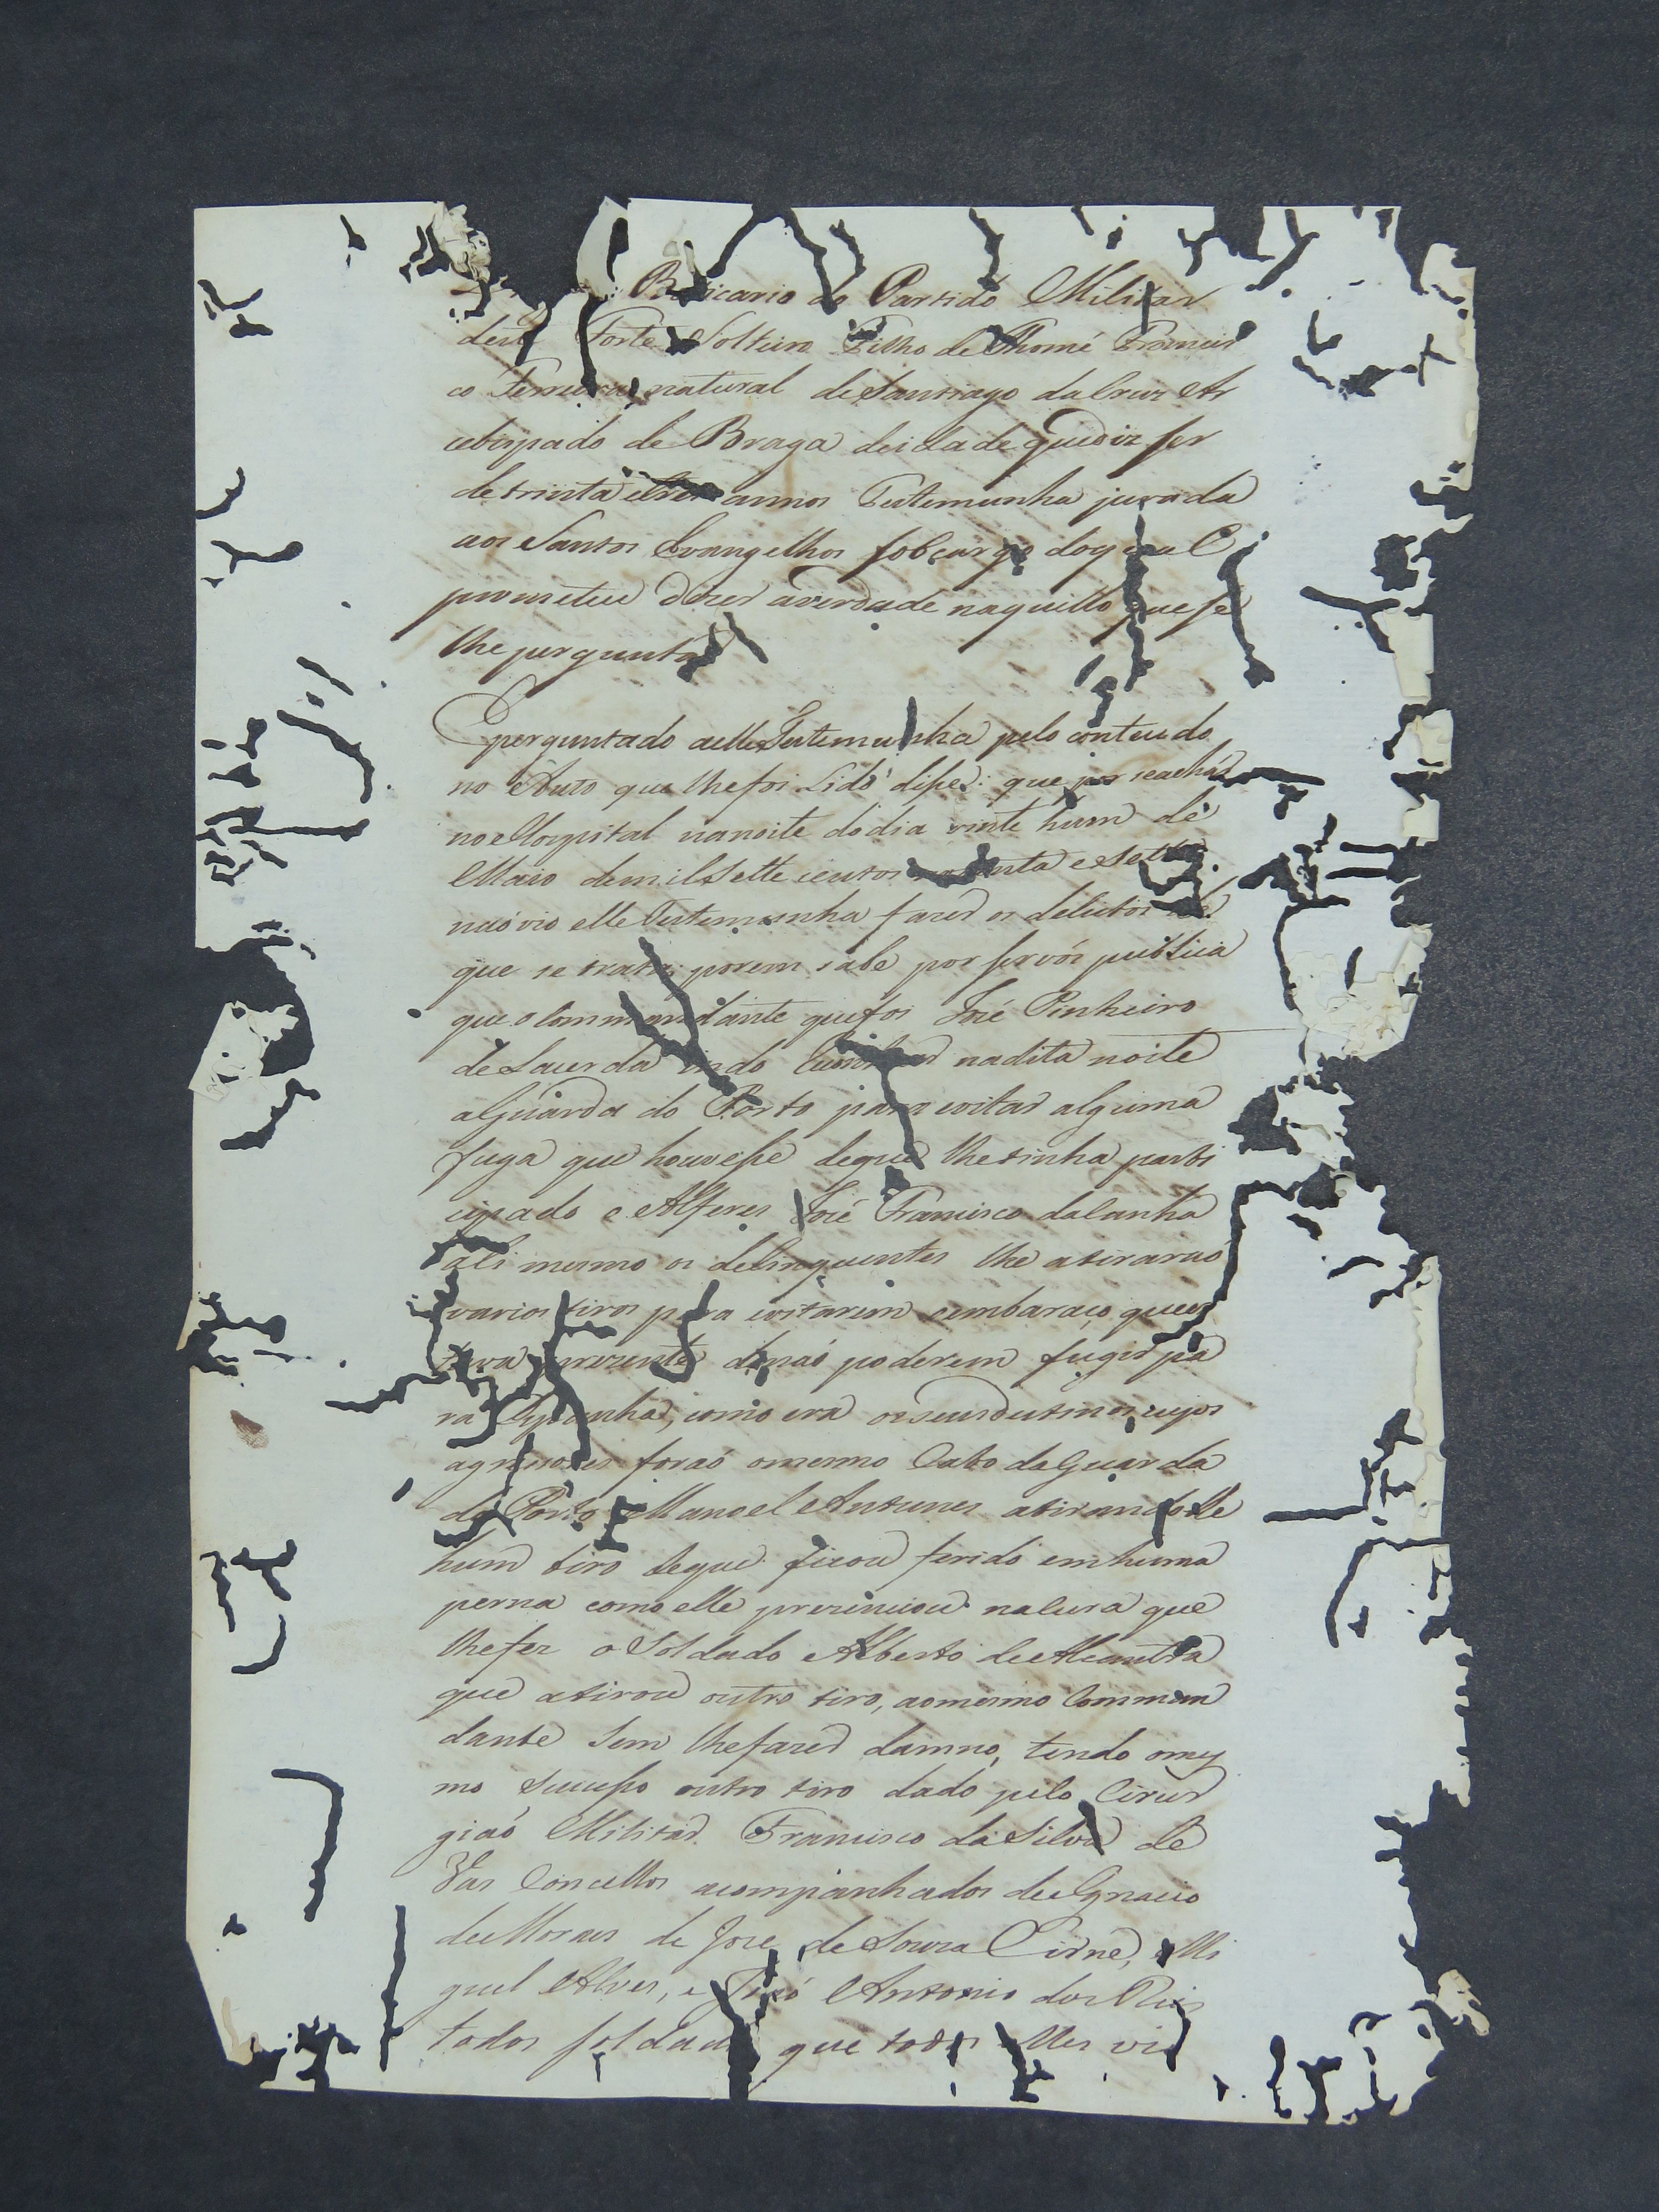 Boticario do Partido Militar
deste Forte Solteiro Filho de Thomé Francis
co Ferreira natural de Santiago da Cruz Ar
cebispado de Braga de idade que diz ser
de trinta e tres annos Testemunha jurada
aos Santos Evangelhos sob cargo do qual
prometeu dizer a verdade naquillo que se
lhe perguntar
E perguntado a elle Testemunha pelo conteudo
no Auto que lhe foi Lido disse: que por se achar
no Hospital na noite do dia vinte hum de
Maio de mil Sette centos e Sette
não vio elle Testemunha fazer os delictos de
que se trata; porem sabe por ser vós publica
que o Commandante que foi José Pinheiro
de Lacerda indo na dita noite
a Guarda do Porto para evitar alguma
fuga que houvesse de que lhe tinha parti
cipado o Alferes José Francisco da Cunha
ali mesmo os delinquentes lhe atirarão
varios tiros para evitarem o embaraço que es
tava prezente de não poderem fugir pa
ra Espanha, como era o seu cujos
agressores forão o mesmo Cabo da Guarda
do Porto Manoel Antunes atirando lhe
hum tiro de que ficou ferido em huma
perna como elle prezinciou na cura que
lhe fez o Soldado Alberto de Alcantra
que atirou outro tiro, ao mesmo Comman
dante Sem lhe fazer damno, tendo o mes
mo Sucesso outro tiro dado pelo Cirur
gião Militar Francisco da Silva de
Vas Concellos acompanhados de Ignacio
de Moraes de Jose de Souza Cirne, e Mi
guel Alves, e João Antonio dos Reis
todos soldados que todos elles